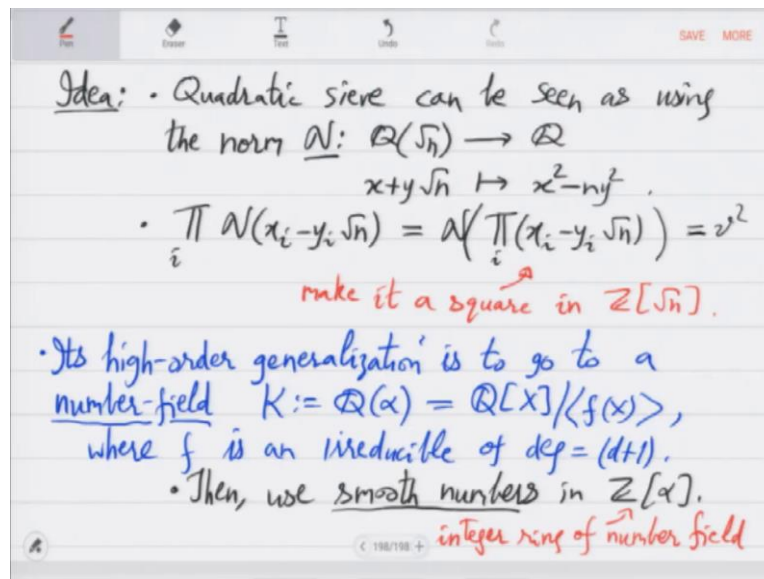 Pen Eraser Text Undo Redo SAVE MORE
Idea: · Quadratic sieve can be seen as using
the norm N: Q(√n) → Q
x+y√n ↦ x²-ny².
· ∏ᵢ N(xᵢ-yᵢ√n) = N(∏ᵢ(xᵢ-yᵢ√n)) = v²
make it a square in Z[√n].
· Its high-order generalization is to go to a
number-field K := Q(α) = Q[X]/<f(x)>,
where f is an irreducible of deg = (d+1).
· Then, use smooth numbers in Z[α].
integer ring of number field
< 198/198 +